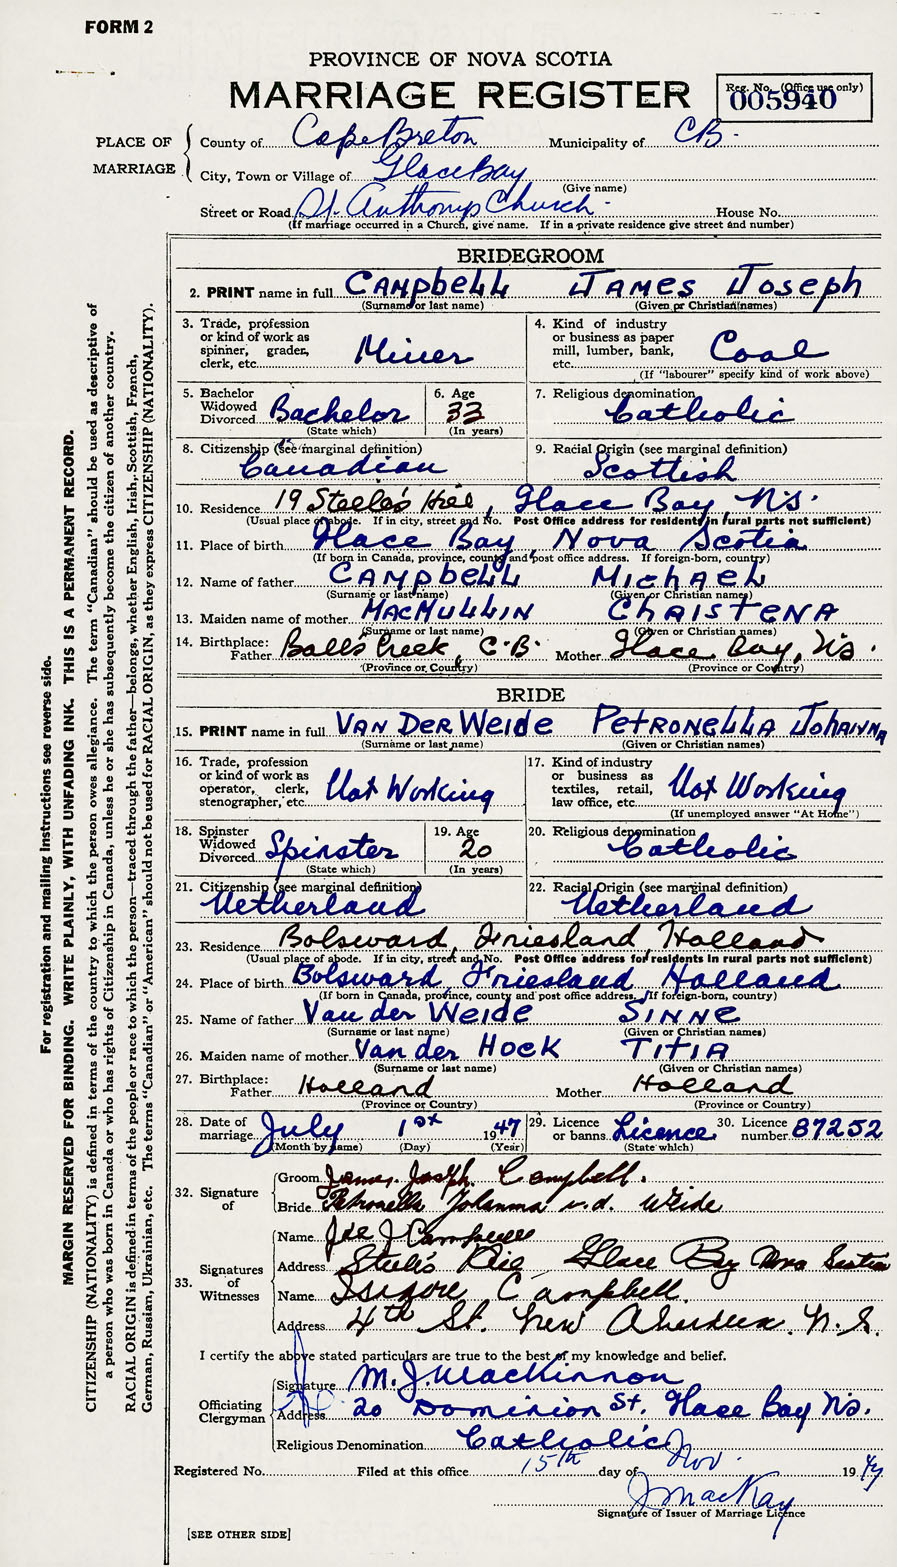 FORM 2
PROVINCE OF NOVA SCOTIA
MARRIAGE REGISTER
Reg. No. (Office use only)
005940
PLACE OF MARRIAGE
County of Cape Breton Municipality of CB.
City, Town or Village of Glace Bay
(Give name)
Street or Road St. Anthonys Church - House No.
(If marriage occurred in a Church, give name. If in a private residence give street and number)
BRIDEGROOM
2. PRINT name in full CAMPbELL JAMES JOSEph
(Surname or last name) (Given or Christian names)
3. Trade, profession or kind of work as spinner, grader, clerk, etc. Miner
4. Kind of industry or business as paper mill, lumber, bank, etc. Coal
(If "labourer" specify kind of work above)
5. Bachelor Widowed Divorced Bachelor
(State which)
6. Age 33
(In years)
7. Religious denomination
Catholic
8. Citizenship (see marginal definition)
Canadian
9. Racial Origin (see marginal definition)
Scottish
10. Residence 19 Steele's Hill, Glace Bay, N.S.
(Usual place of abode. If in city, street and No. Post Office address for residents in rural parts not sufficient)
11. Place of birth Glace Bay, Nova Scotia
(If born in Canada, province, county and post office address. If foreign-born, country)
12. Name of father CAMPbELL MIChAEL
(Surname or last name) (Given or Christian names)
13. Maiden name of mother MACMULLIN ChRISTENA
(Surname or last name) (Given or Christian names)
14. Birthplace: Father Balls Creek, C.B. Mother Glace Bay, N.S.
(Province or Country) (Province or Country)
BRIDE
15. PRINT name in full VAN DER WEIDE PETRONELLA JOhANNA
(Surname or last name) (Given or Christian names)
16. Trade, profession or kind of work as operator, clerk, stenographer, etc. Not Working
17. Kind of industry or business as textiles, retail, law office, etc. Not Working
(If unemployed answer "At Home")
18. Spinster Widowed Divorced Spinster
(State which)
19. Age 20
(In years)
20. Religious denomination
Catholic
21. Citizenship (see marginal definition)
Netherland
22. Racial Origin (see marginal definition)
Netherland
23. Residence Bolsward, Friesland, Holland
(Usual place of abode. If in city, street and No. Post Office address for residents in rural parts not sufficient)
24. Place of birth Bolsward, Friesland Holland
(If born in Canada, province, county and post office address. If foreign-born, country)
25. Name of father Van der Weide SINNE
(Surname or last name) (Given or Christian names)
26. Maiden name of mother Van der HOEK TITIA
(Surname or last name) (Given or Christian names)
27. Birthplace: Father Holland Mother Holland
(Province or Country) (Province or Country)
28. Date of marriage July 1st 1947
(Month by name) (Day) (Year)
29. Licence or banns Licence
(State which)
30. Licence number 87252
32. Signature of
Groom James Joseph Campbell.
Bride Petronella Johanna v.d. Weide
33. Signatures of Witnesses
Name Joe J Campbell
Address Steele's Glace Bay Nova Scotia
Name Isidore Campbell
Address 4th St. New Aberdeen. N.S.
I certify the above stated particulars are true to the best of my knowledge and belief.
Officiating Clergyman
Signature M. J. MacKinnon
Address 20 Dominion St. Glace Bay N.S.
Religious Denomination Catholic
Registered No. Filed at this office 15th day of Nov. 1947
J MacKay
Signature of Issuer of Marriage Licence
[SEE OTHER SIDE]
For registration and mailing instructions see reverse side.
MARGIN RESERVED FOR BINDING. WRITE PLAINLY, WITH UNFADING INK. THIS IS A PERMANENT RECORD.
CITIZENSHIP (NATIONALITY) is defined in terms of the country to which the person owes allegiance. The term "Canadian" should be used as descriptive of
a person who was born in Canada or who has rights of Citizenship in Canada, unless he or she has subsequently become the citizen of another country.
RACIAL ORIGIN is defined in terms of the people or race to which the person—traced through the father—belongs, whether English, Irish, Scottish, French,
German, Russian, Ukrainian, etc. The terms "Canadian" or "American" should not be used for RACIAL ORIGIN, as they express CITIZENSHIP (NATIONALITY).